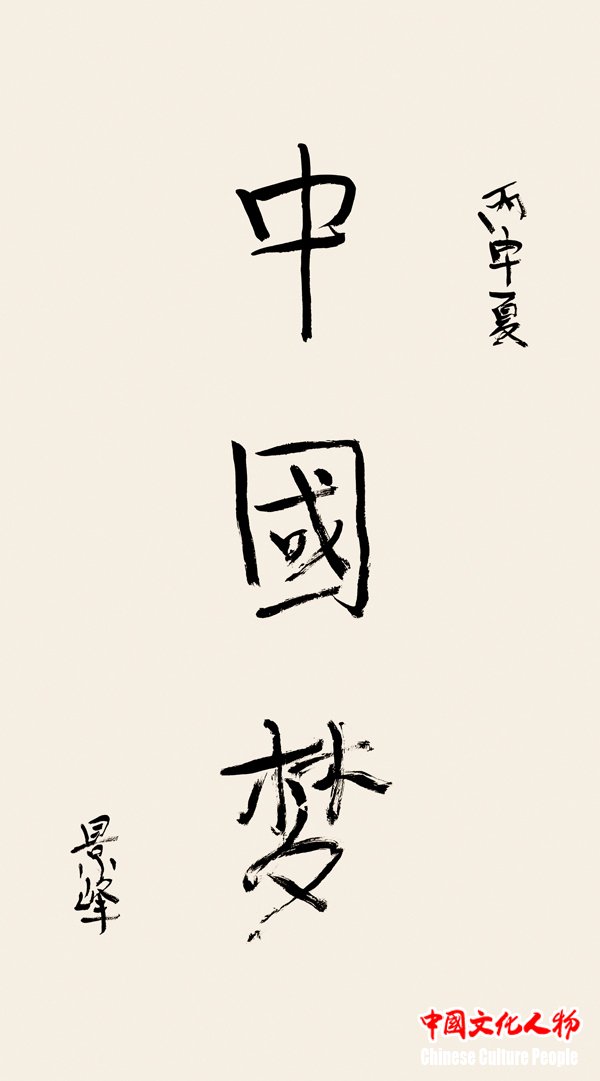 丙申夏
中國梦
景峰
中國文化人物
Chinese Culture People